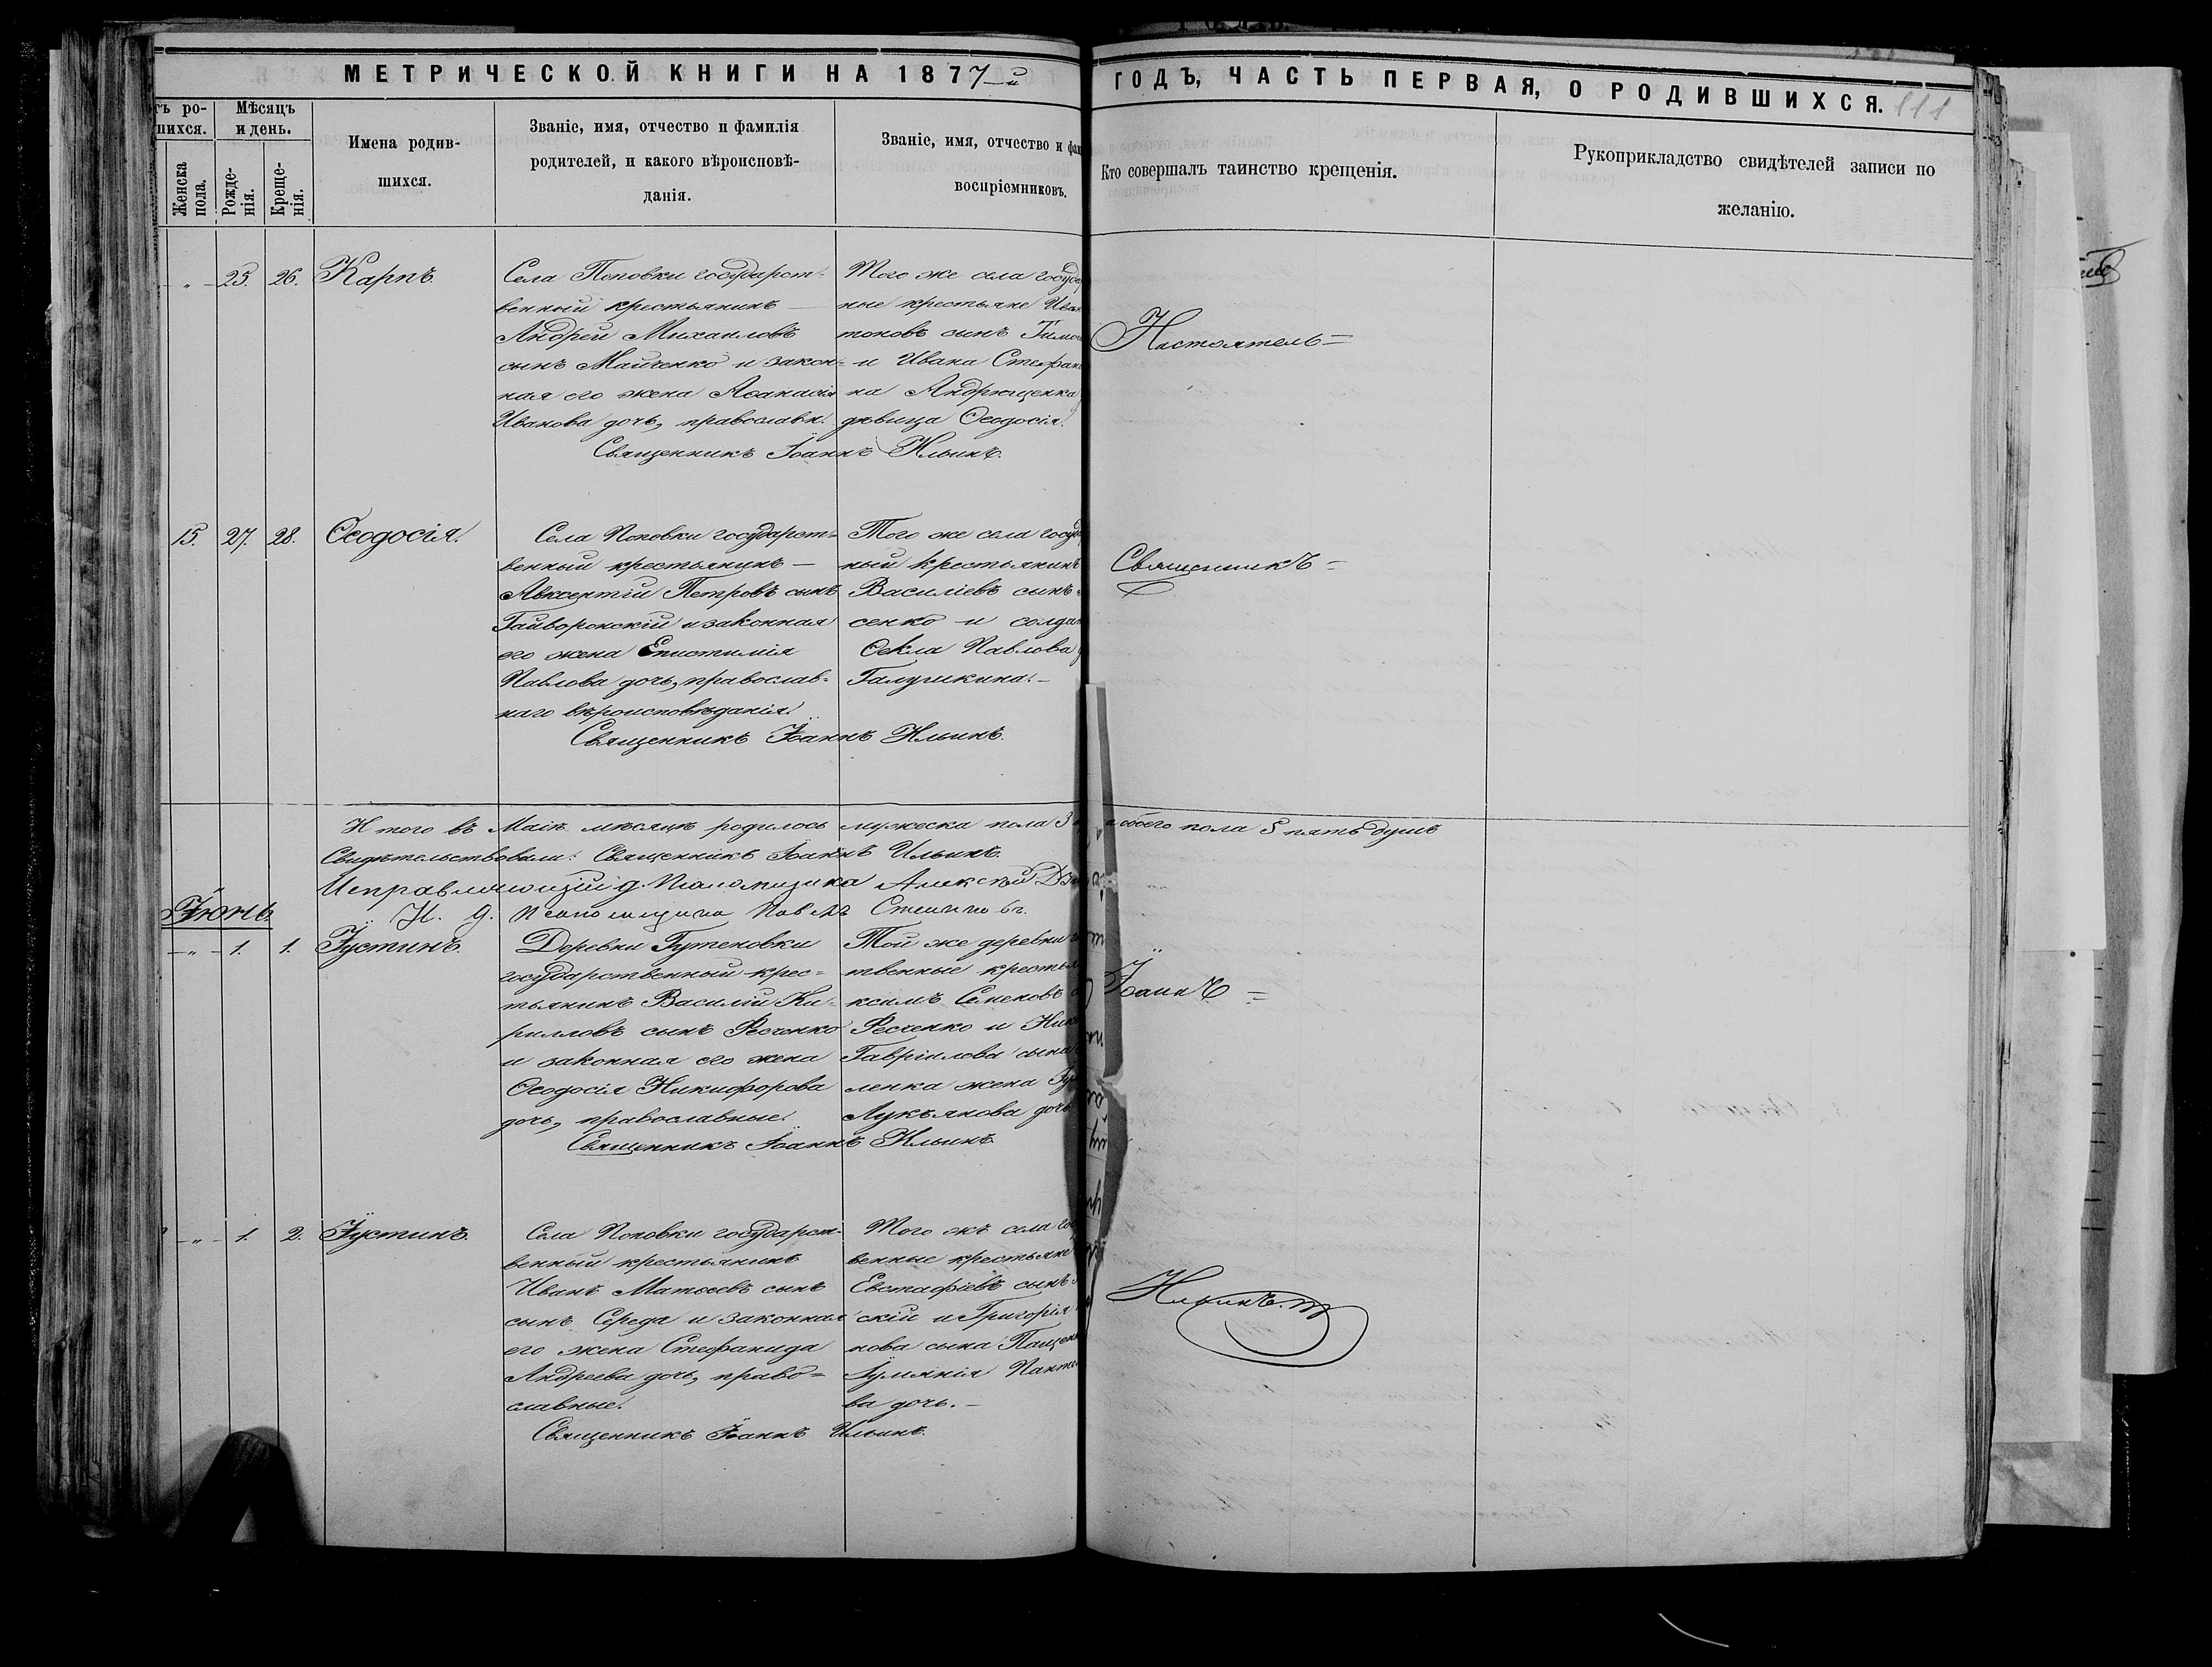 МЕТРИЧЕСКОЙ КНИГИ НА 1877-й
ГОДЪ, ЧАСТЬ ПЕРВАЯ, О РОДИВШИХСЯ. 111
тъ ро-
шихся.
Мѣсяцъ
и день.
Женска
пола.
Рожде-
нія.
Креще-
нія.
Имена родив-
шихся.
Званіе, имя, отчество и фамилія
родителей, и какого вѣроисповѣ-
данія.
Званіе, имя, отчество и фам
воспріемниковъ.
Кто совершалъ таинство крещенія.
Рукоприкладство свидѣтелей записи по
желанію.
" 25. 26. Карпъ.
Села Поповки государст-
венный крестьянинъ
Андрей Михаиловъ
сынъ Майченко и закон-
ная его жена Аѳанасія
Иванова дочь, православн.
Того же села госуда
ные крестьяне Иван
тоновъ сынъ Тимо
и Ивана Стефан
на Андрющенка
дѣвица Ѳеодосія.
Священникъ Іоаннъ Ильинъ.
Настоятель
15. 27. 28. Ѳеодосія.
Села Поповки государст-
венный крестьянинъ
Авксентій Петровъ сынъ
Гайворонскій и законная
его жена Епистимія
Павлова дочь, православ-
наго вѣроисповѣданія.
Того же села госуд
ный крестьянинъ
Василіевъ сынъ
сенко и солда
Ѳекла Павлова
Галушкина.
Священникъ Іоаннъ Ильинъ.
Священникъ
Итого въ Маіѣ мѣсяцѣ родилось мужеска пола 3 обоего пола 5 пять душъ
Свидѣтельствовали: Священникъ Іоаннъ Ильинъ.
Исправляющій д. Псаломщика Алексѣй
И. д. Псаломщика Павелъ
Іюнь.
" 1. 1. Іустинъ.
Деревни Гутеновки
государственный крес-
тьянинъ Василій Ки-
рилловъ сынъ Ресченко
и законная его жена
Ѳеодосія Никифорова
дочь, православные.
Той же деревни
твенные крестья
ксимъ Семеновъ
Ресченко и Ник
Гавріилова сына
ленка жена
Лукьянова дочь
Священникъ Іоаннъ Ильинъ.
Іоаннъ
" 1. 2. Іустинъ.
Села Поповки государст-
венный крестьянинъ
Иванъ Матѳеевъ сынъ
сынъ Середа и законная
его жена Стефанида
Андреева дочь, право-
славные.
Того жъ села гос
венные крестьяне
Евстафіевъ сынъ
скій и Григорія
нова сына Пащен
Іуліянія Панте
ва дочь.
Священникъ Іоаннъ Ильинъ.
Ильинъ.